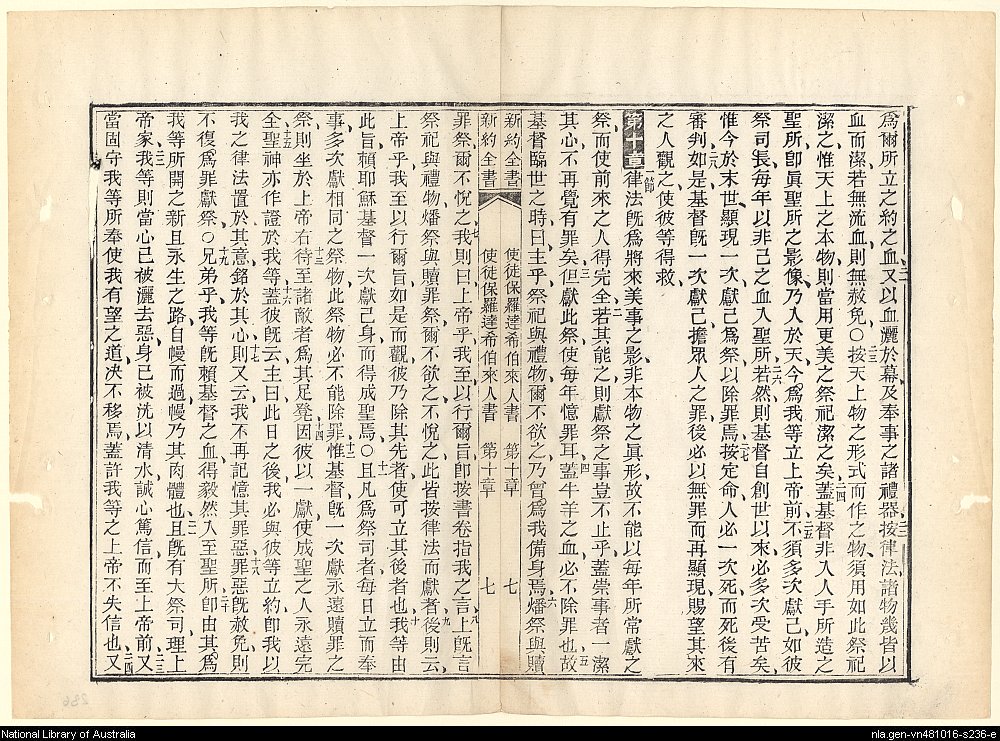 為爾所立之約之血又以血灑於幕及奉事之諸禮器按律法諸物幾皆以
血而潔若無流血則無赦免〇按天上物之形式而作之物須用如此祭祀
潔之惟天上之本物則當用更美之祭祀潔之矣蓋基督非入人手所造之
聖所卽眞聖所之影像乃入於天今為我等立上帝前不須多次獻己如彼
祭司長每年以非己之血入聖所若然則基督自創世以來必多次受苦矣
惟今於末世顯現一次獻己為祭以除罪焉按定命人必一次死而死後有
審判如是基督旣一次獻己擔眾人之罪後必以無罪而再顯現賜望其來
之人觀之使彼等得救
第十章 一節 律法旣為將來美事之影非本物之眞形故不能以每年所常獻之
祭而使前來之人得完全若其能之則獻祭之事豈不止乎蓋崇事者一潔
其心不再覺有罪矣但獻此祭使每年憶罪耳蓋牛羊之血必不除罪也故
基督臨世之時曰主乎祭祀與禮物爾不欲之乃曾為我備身焉燔祭與贖
新約全書 使徒保羅達希伯來人書 第十章 七
新約全書 使徒保羅達希伯來人書 第十章 七
罪祭爾不悅之我則曰上帝乎我至以行爾旨卽按書卷指我之言上旣言
祭祀與禮物燔祭與贖罪祭爾不欲之不悅之此皆按律法而獻者後則云
上帝乎我至以行爾旨如是而觀彼乃除其先者使可立其後者也我等由
此旨賴耶穌基督一次獻己身而得成聖焉〇且凡為祭司者每日立而奉
事多次獻相同之祭物此祭物必不能除罪惟基督旣一次獻永遠贖罪之
祭則坐於上帝右待至諸敵者為其足凳因彼以一獻使成聖之人永遠完
全聖神亦作證於我等蓋彼旣云主曰此日之後我必與彼等立約卽我以
我之律法置於其意銘於其心則又云我不再記憶其罪惡罪惡旣赦免則
不復為罪獻祭〇兄弟乎我等旣賴基督之血得毅然入至聖所卽由其為
我等所開之新且永生之路自幔而過幔乃其肉體也且旣有大祭司理上
帝家我等則當心已被灑去惡身已被洗以清水誠心篤信而至上帝前又
當固守我等所奉使我有望之道決不移焉蓋許我等之上帝不失信也又
National Library of Australia
nla.gen-vn481016-s236-e